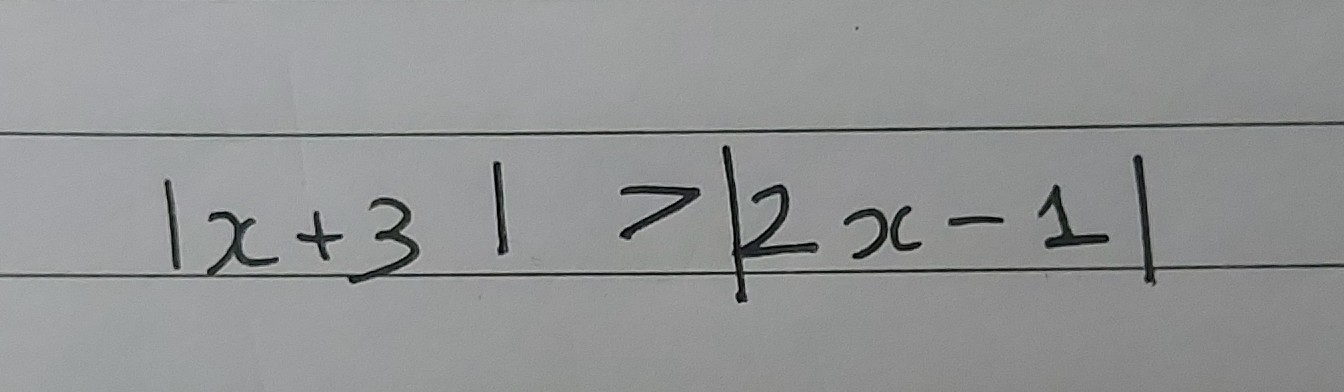 |x+3| > |2x-1|